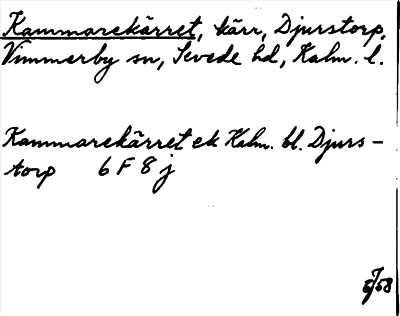 Kammarekärret, kärr, Djurstorp,
Vimmerby sn, Sevede hd, Kalm. l.
Kammarekärret ek Kalm. bl. Djurs-
torp 6 F 8 j